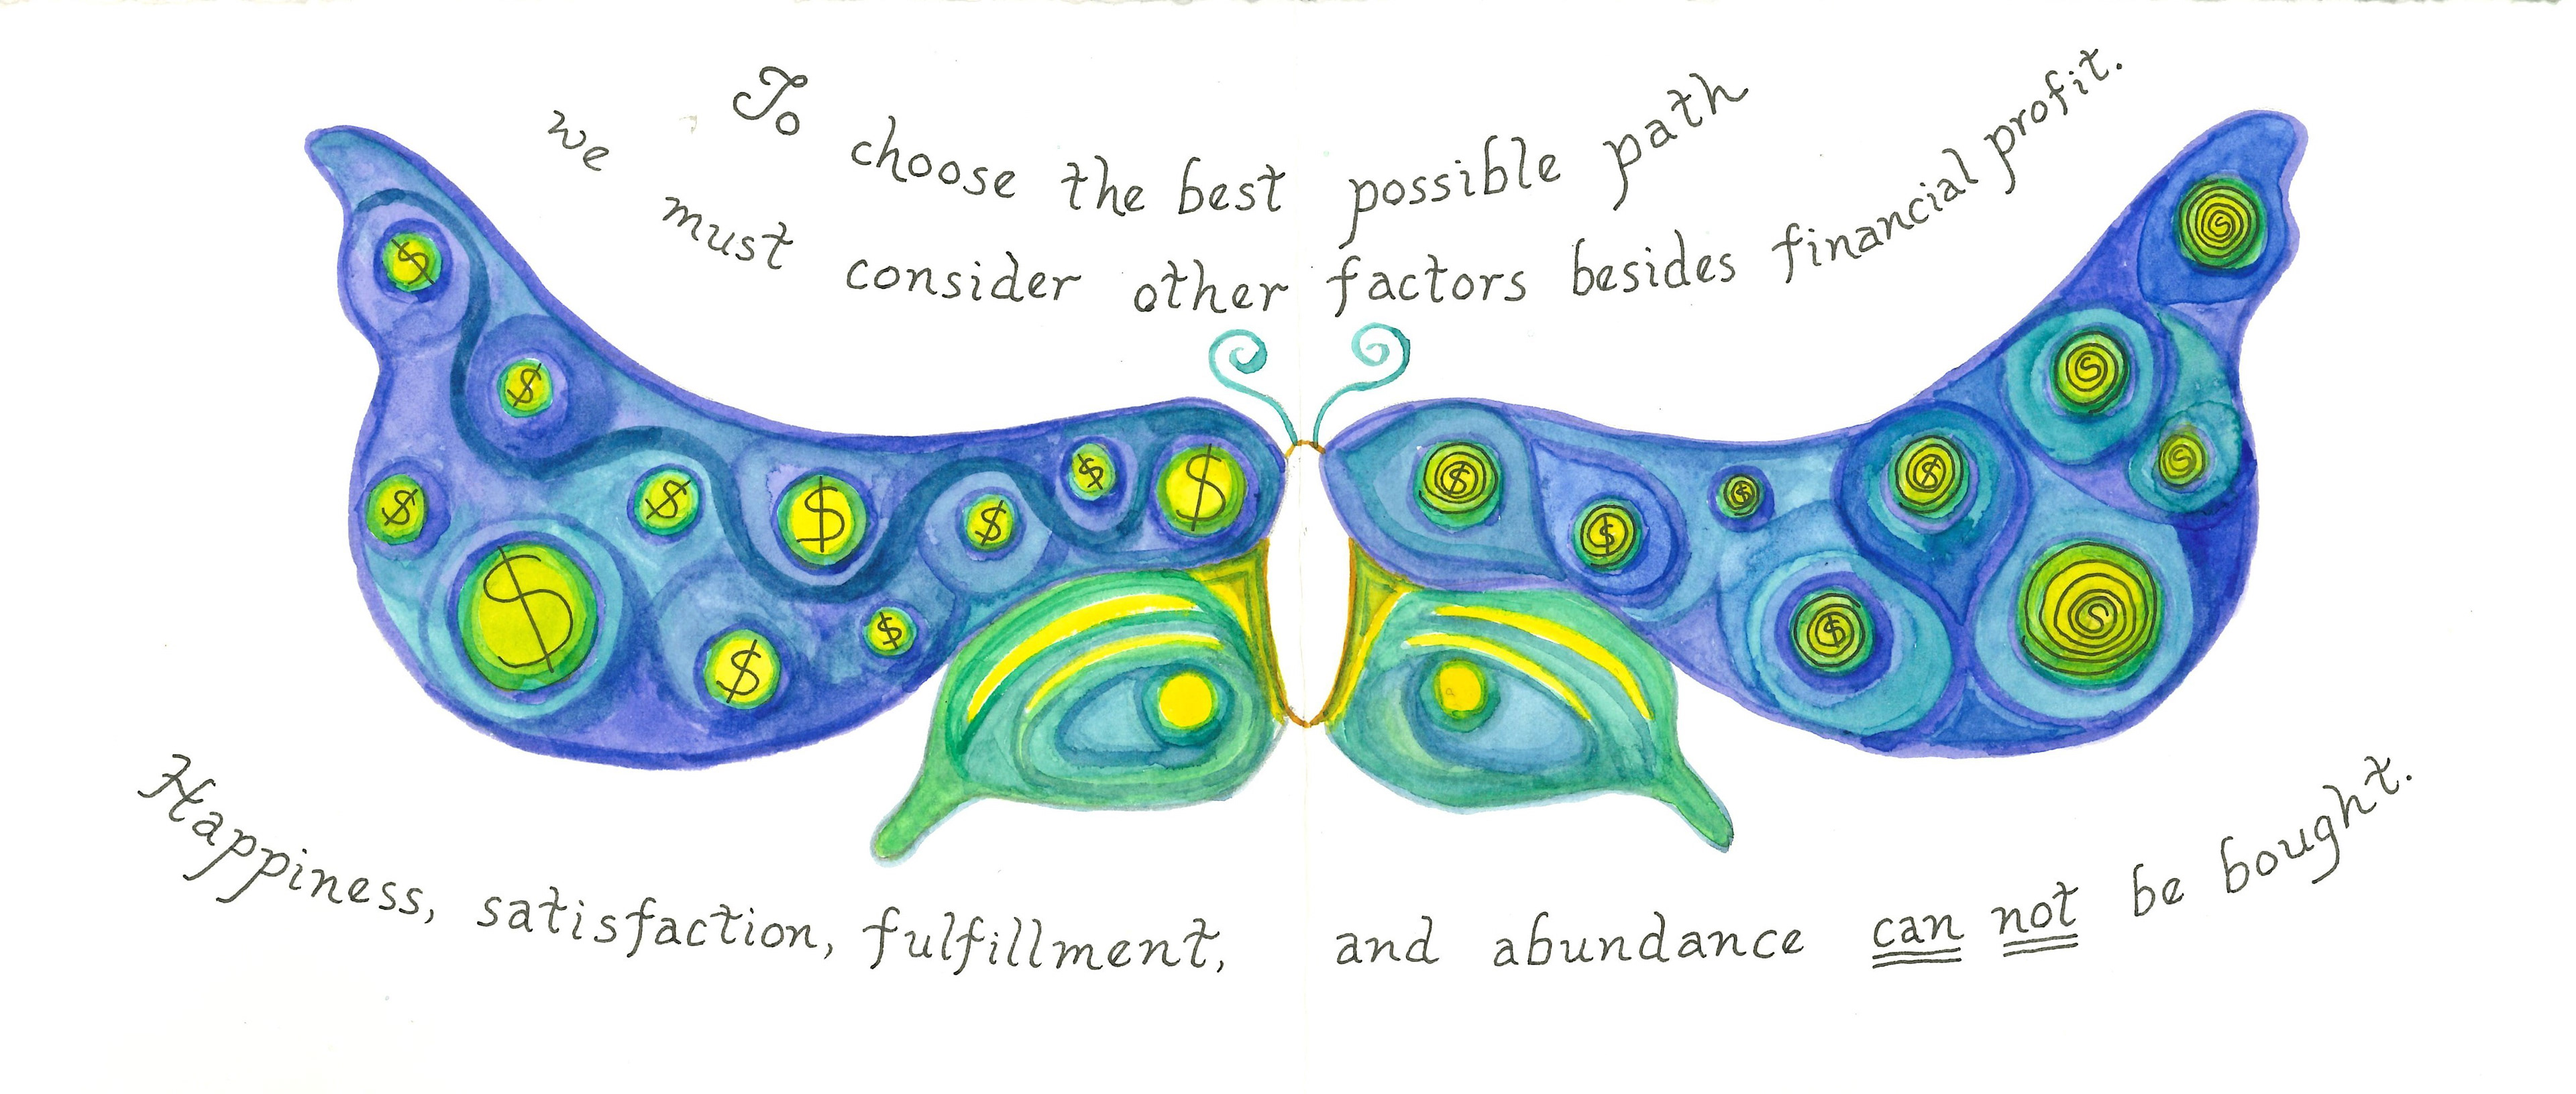 To choose the best possible path
we must consider other factors besides financial profit.
$ $ $ $ $ $ $ $ $ $ $ $ $ $ $ $
Happiness, satisfaction, fulfillment, and abundance can not be bought.